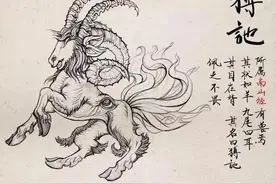 猼訑
所属南山经 有兽焉
其状如羊 九尾四耳
其目在背 其名曰猼訑
佩之不畏